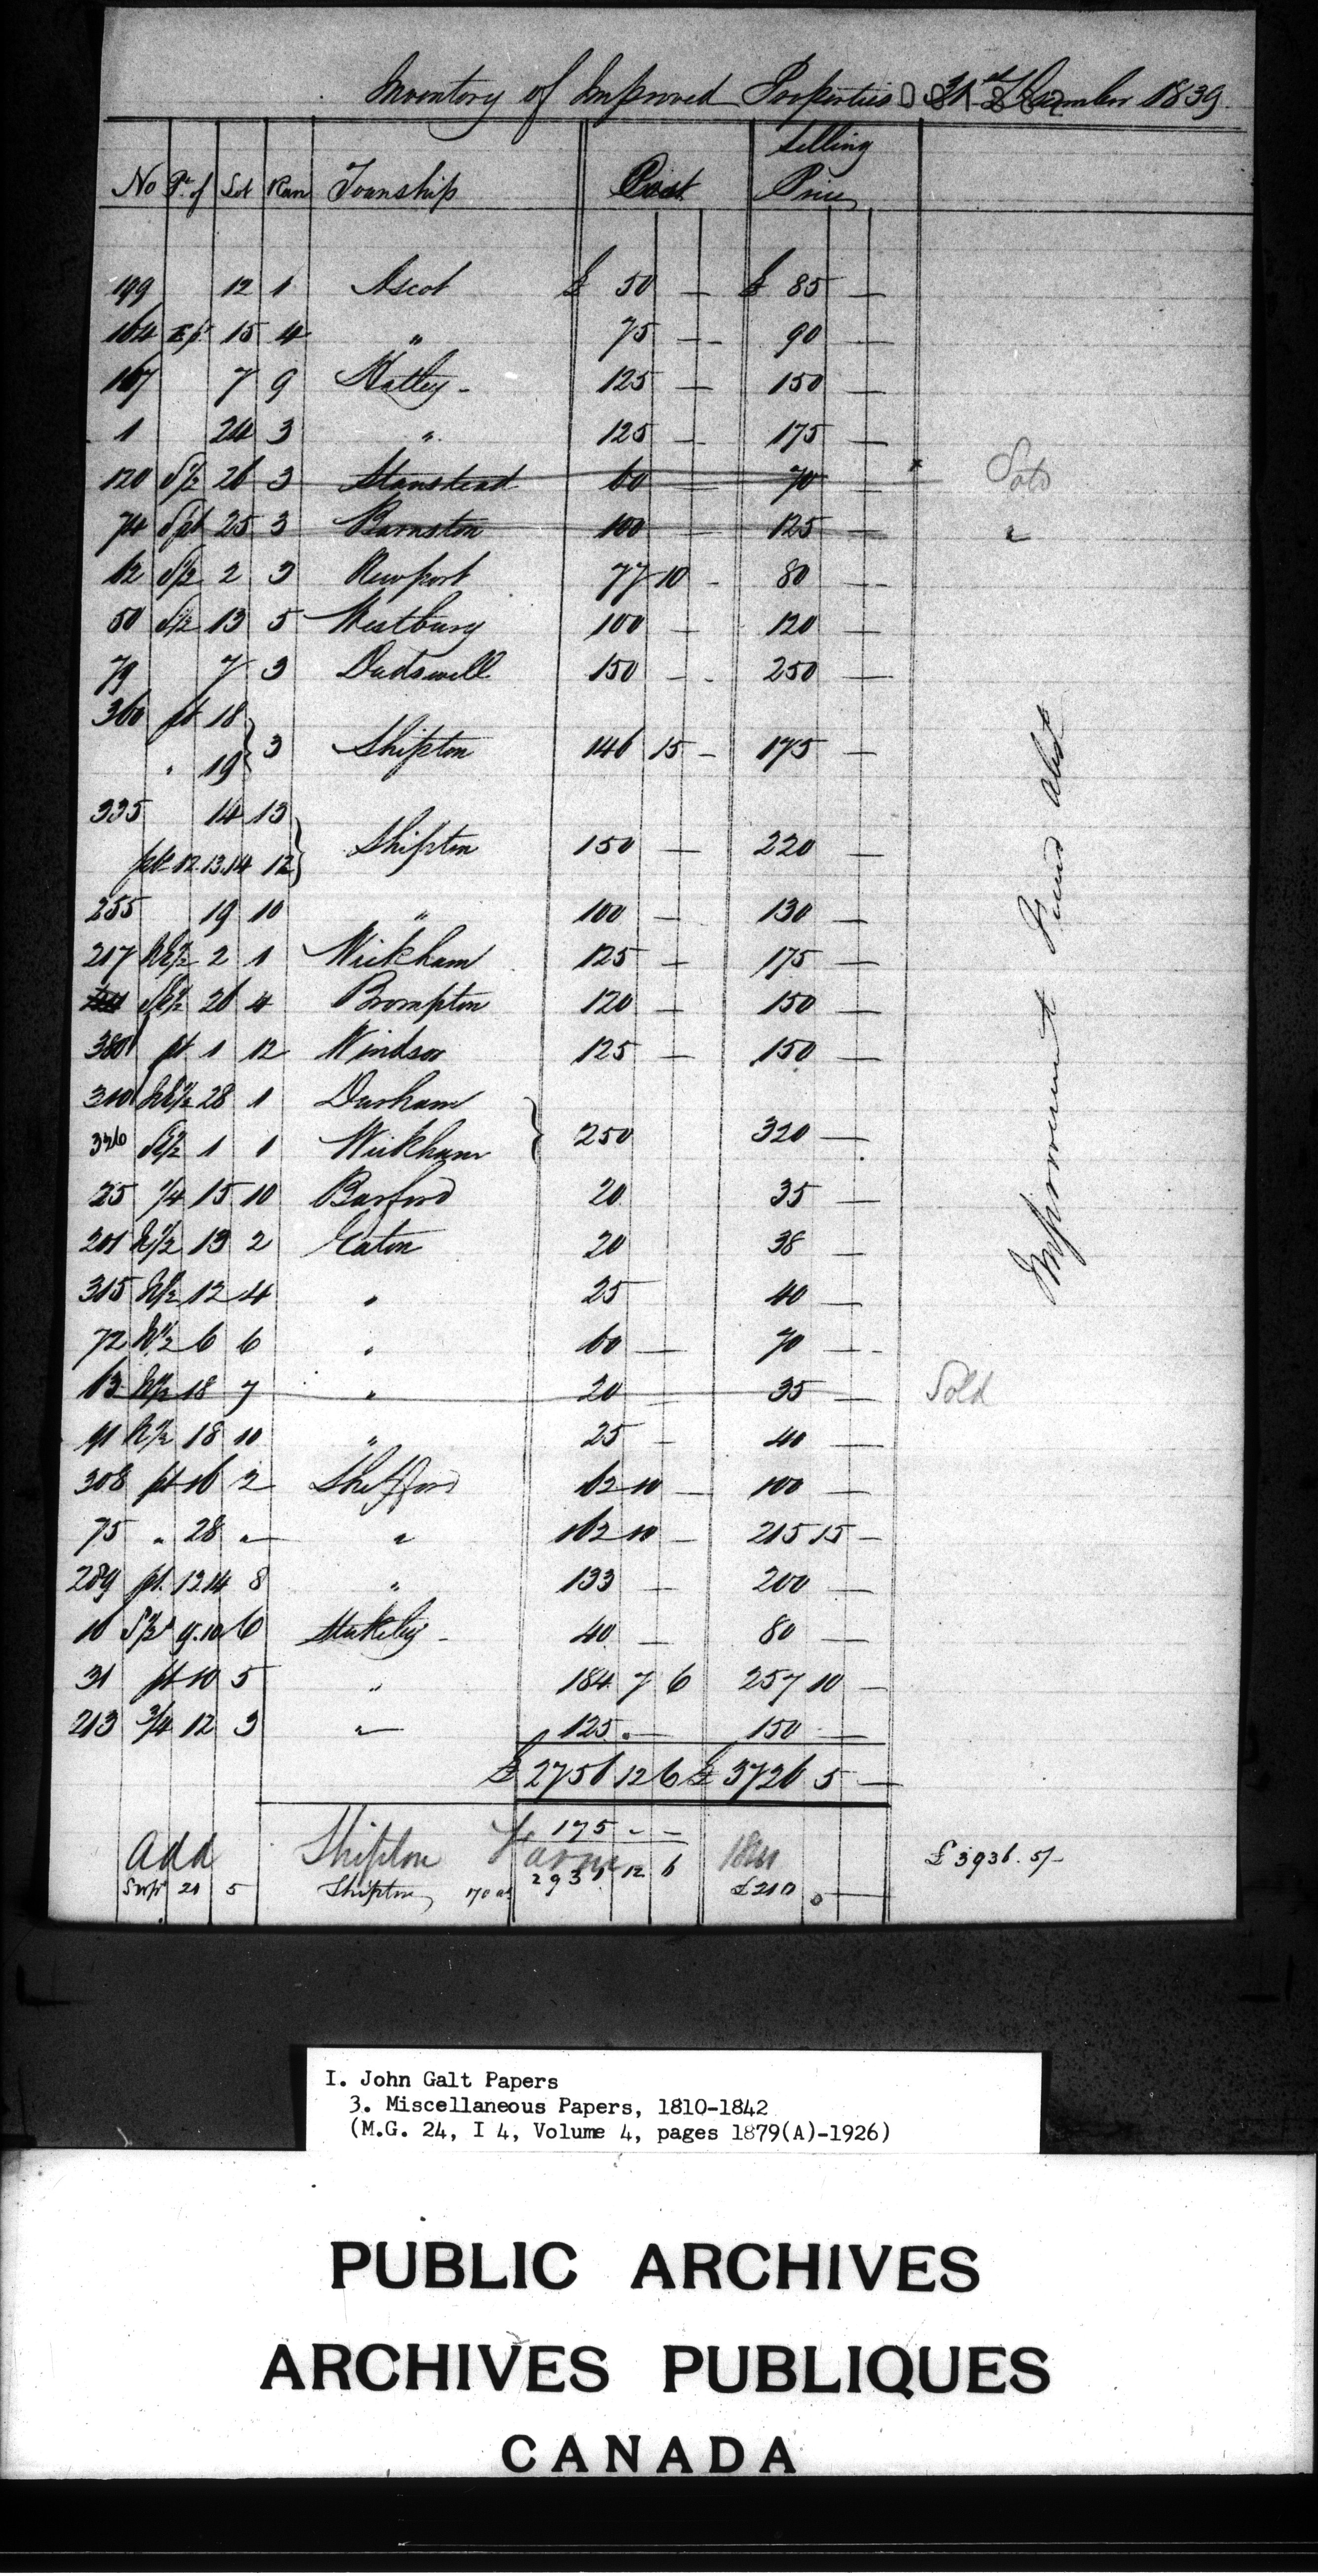 Inventory of Improved Properties 31st December 1839
No Pt. of Lot Ran Township Cost Selling Price
199 12 1 Ascot £ 50 — £ 85 —
164 15 4 " 75 — 90 —
167 7 9 Hatley - 125 — 150 —
1 24 3 " 125 — 175 —
120 S½ 26 3 Stanstead 60 — 70 — Sold
74 Spt 25 3 Barnston 100 — 125 — "
62 S½ 2 3 Newport 77 10 - 80 —
50 S½ 13 5 Westbury 100 — 120 —
79 7 3 Dudswell 150 - - 250 —
360 pt 18
" 19 } 3 Shipton 146 15 - 175 —
335 14 13
pts 12.13.14 12 } Shipton 150 — 220 —
255 19 10 " 100 — 130 —
217 NE½ 2 1 Wickham 125 — 175 —
SE½ 26 4 Brompton 120 — 150 —
380 pt 1 12 Windsor 125 — 150 —
310 NE½ 28 1 Durham
326 SE½ 1 1 Wickham } 250 320 —
25 ¼ 15 10 Barford 20 35 —
201 N½ 13 2 Eaton 20 38 —
315 N½ 12 4 " 25 40 —
72 N½ 6 6 " 60 — 70 —
63 N½ 18 7 " 20 — 35 — Sold
91 N½ 18 10 " 25 — 40 —
308 pt 16 2 Shefford 62 10 — 100 —
75 " 28 " " 162 10 — 215 15 —
289 pt. 13.14 8 " 133 — 200 —
10 S½ 9.10 6 Stukely - 40 — 80 —
31 pt 10 5 " 184 7 6 257 10 —
213 ¾ 12 3 " 125 . — 150 —
£ 2756 12 6 £ 3726 5 —
Improvement Fund Abst
175 - -
Add Shipton Farm 2931 12 6 £ 3936. 5/-
21 5 Shipton 170 as £ 210 0 —
I. John Galt Papers
3. Miscellaneous Papers, 1810-1842
(M.G. 24, I 4, Volume 4, pages 1879(A)-1926)
PUBLIC ARCHIVES
ARCHIVES PUBLIQUES
CANADA